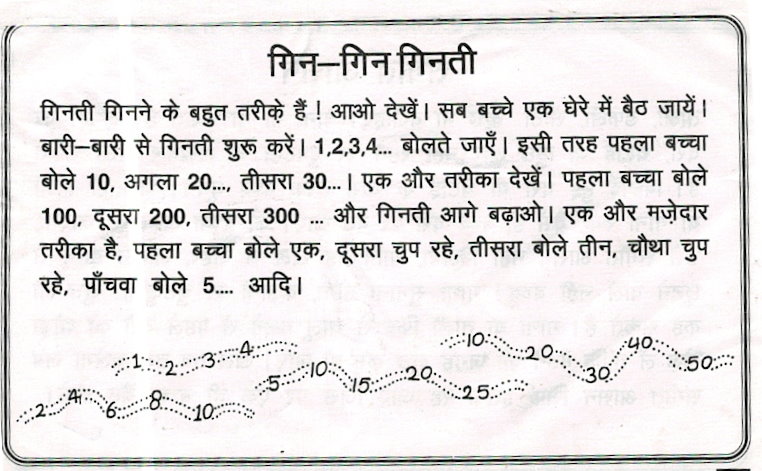 गिन–गिन गिनती
गिनती गिनने के बहुत तरीक़े हैं ! आओ देखें। सब बच्चे एक घेरे में बैठ जायें।
बारी–बारी से गिनती शुरू करें। 1,2,3,4... बोलते जाएँ। इसी तरह पहला बच्चा
बोले 10, अगला 20..., तीसरा 30...। एक और तरीका देखें। पहला बच्चा बोले
100, दूसरा 200, तीसरा 300 ... और गिनती आगे बढ़ाओ। एक और मज़ेदार
तरीका है, पहला बच्चा बोले एक, दूसरा चुप रहे, तीसरा बोले तीन, चौथा चुप
रहे, पाँचवा बोले 5... आदि।
1 2 3 4
10 20 30 40 50
5 10 15 20 25
2 4 6 8 10